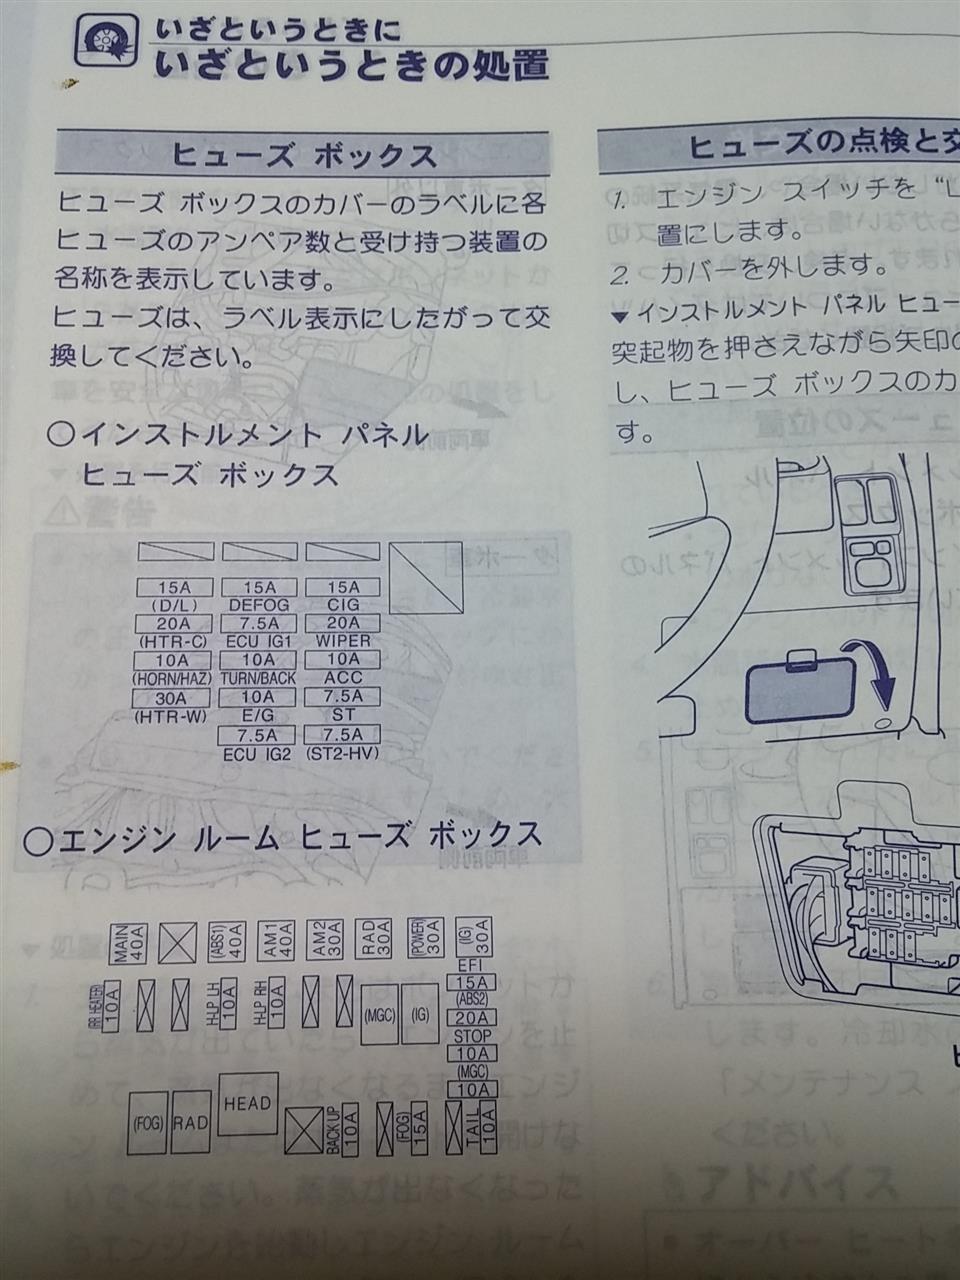 いざというときに
いざというときの処置
ヒューズ ボックス
ヒューズ ボックスのカバーのラベルに各
ヒューズのアンペア数と受け持つ装置の
名称を表示しています。
ヒューズは、ラベル表示にしたがって交
換してください。
○インストルメント パネル
ヒューズ ボックス
15A 15A 15A
(D/L) DEFOG CIG
20A 7.5A 20A
(HTR-C) ECU IG1 WIPER
10A 10A 10A
(HORN/HAZ) TURN/BACK ACC
30A 10A 7.5A
(HTR-W) E/G ST
7.5A 7.5A
ECU IG2 (ST2-HV)
○エンジン ルーム ヒューズ ボックス
MAIN 40A
(ABS1) 40A
AM1 40A
AM2 30A
RAD 30A
(POWER) 30A
(IG) 30A
EFI
15A
(ABS2)
20A
STOP
10A
(MGC)
10A
RR HEATER) 10A
H-LP LH 10A
H-LP RH 10A
(MGC)
(IG)
(FOG)
RAD
HEAD
BACK UP 10A
(FOG) 15A
TAIL 10A
ヒューズの点検と交
1. エンジン スイッチを “L
置にします。
2. カバーを外します。
▼インストルメント パネル ヒュー
突起物を押さえながら矢印の
し、ヒューズ ボックスのカ
す。